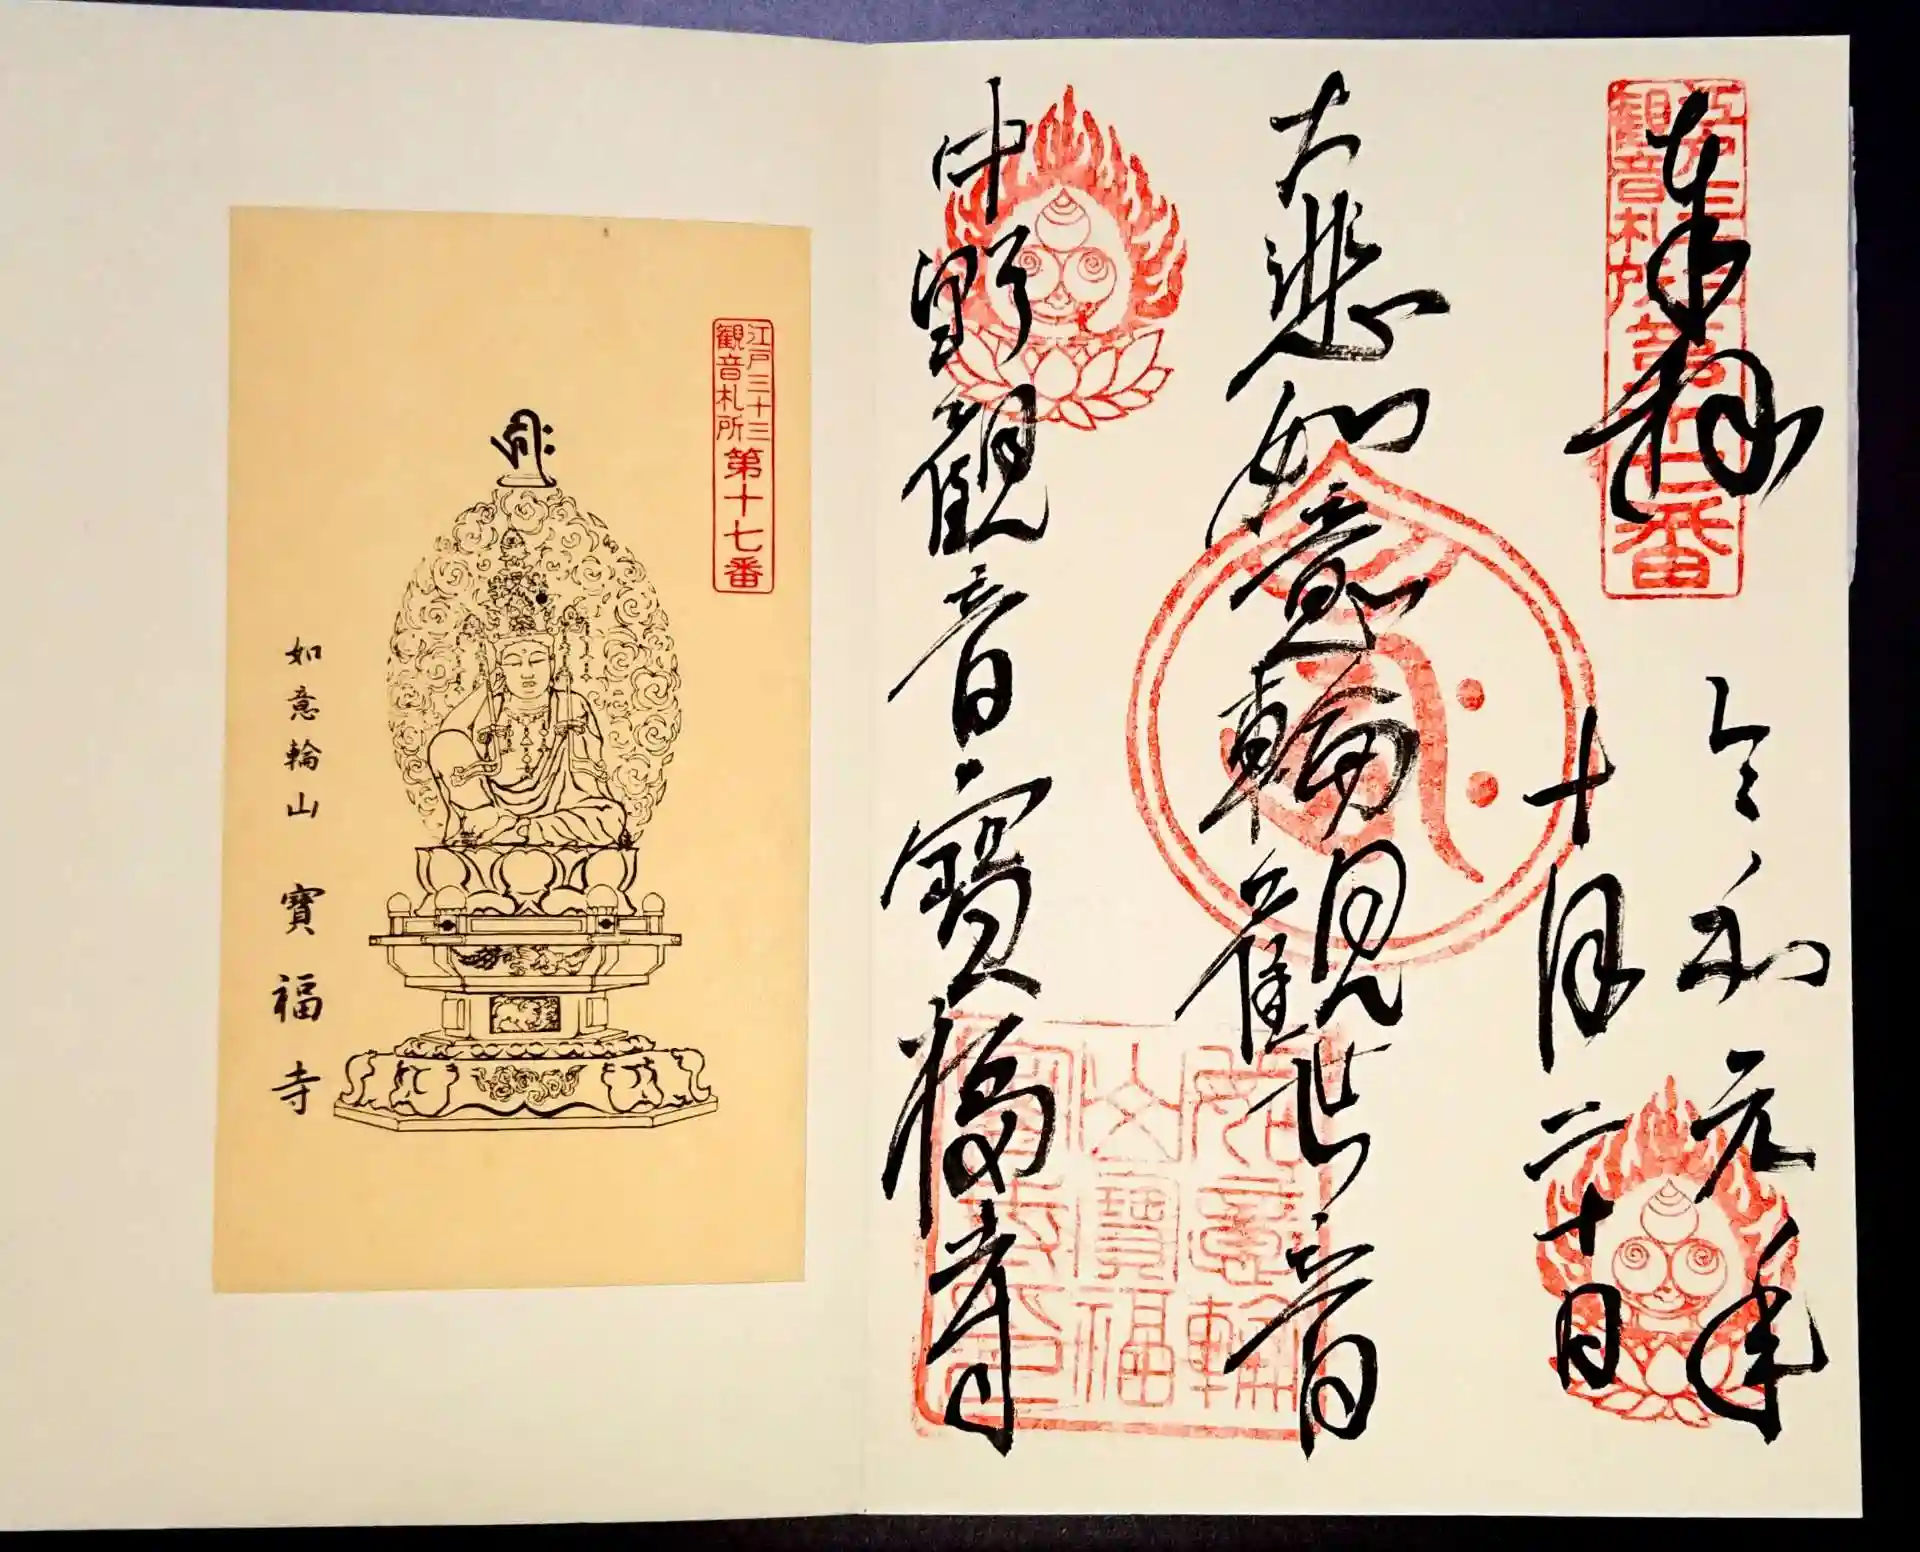 奉拝
令和元年
十月二十日
大悲如意輪観世音
中野観音寳福寺
江戸三十三
観音札所
第十七番
如意輪
山寳福
江戸三十三
観音札所
第十七番
如意輪山 寳福寺